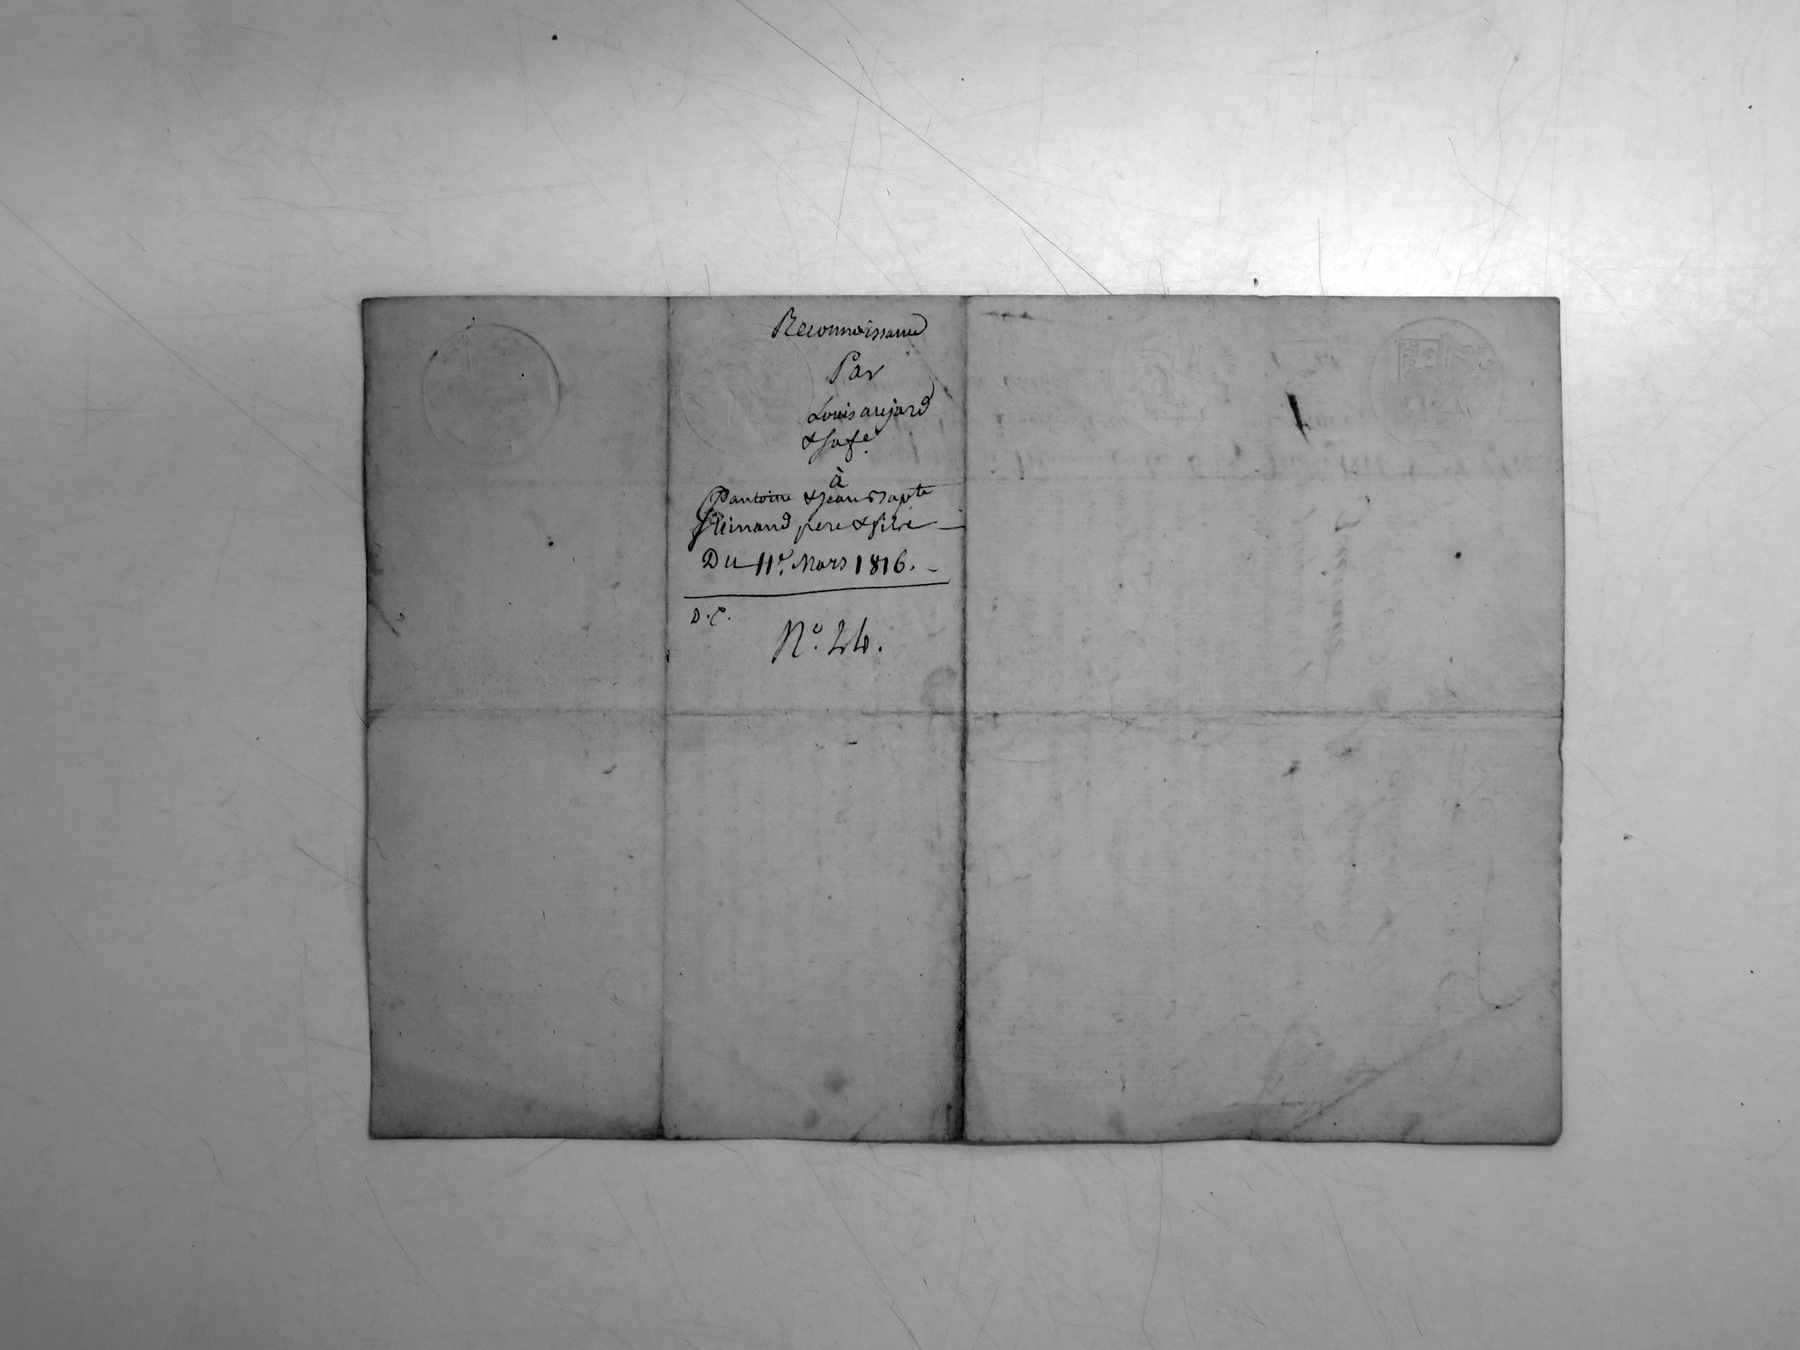 Reconnoissance
Par
Louis aujard
& sa fe
à
Pantoine & Jean Bapte
Grimand pere & fils
Du 11e. Mars 1816.
D.C.
No. 24.